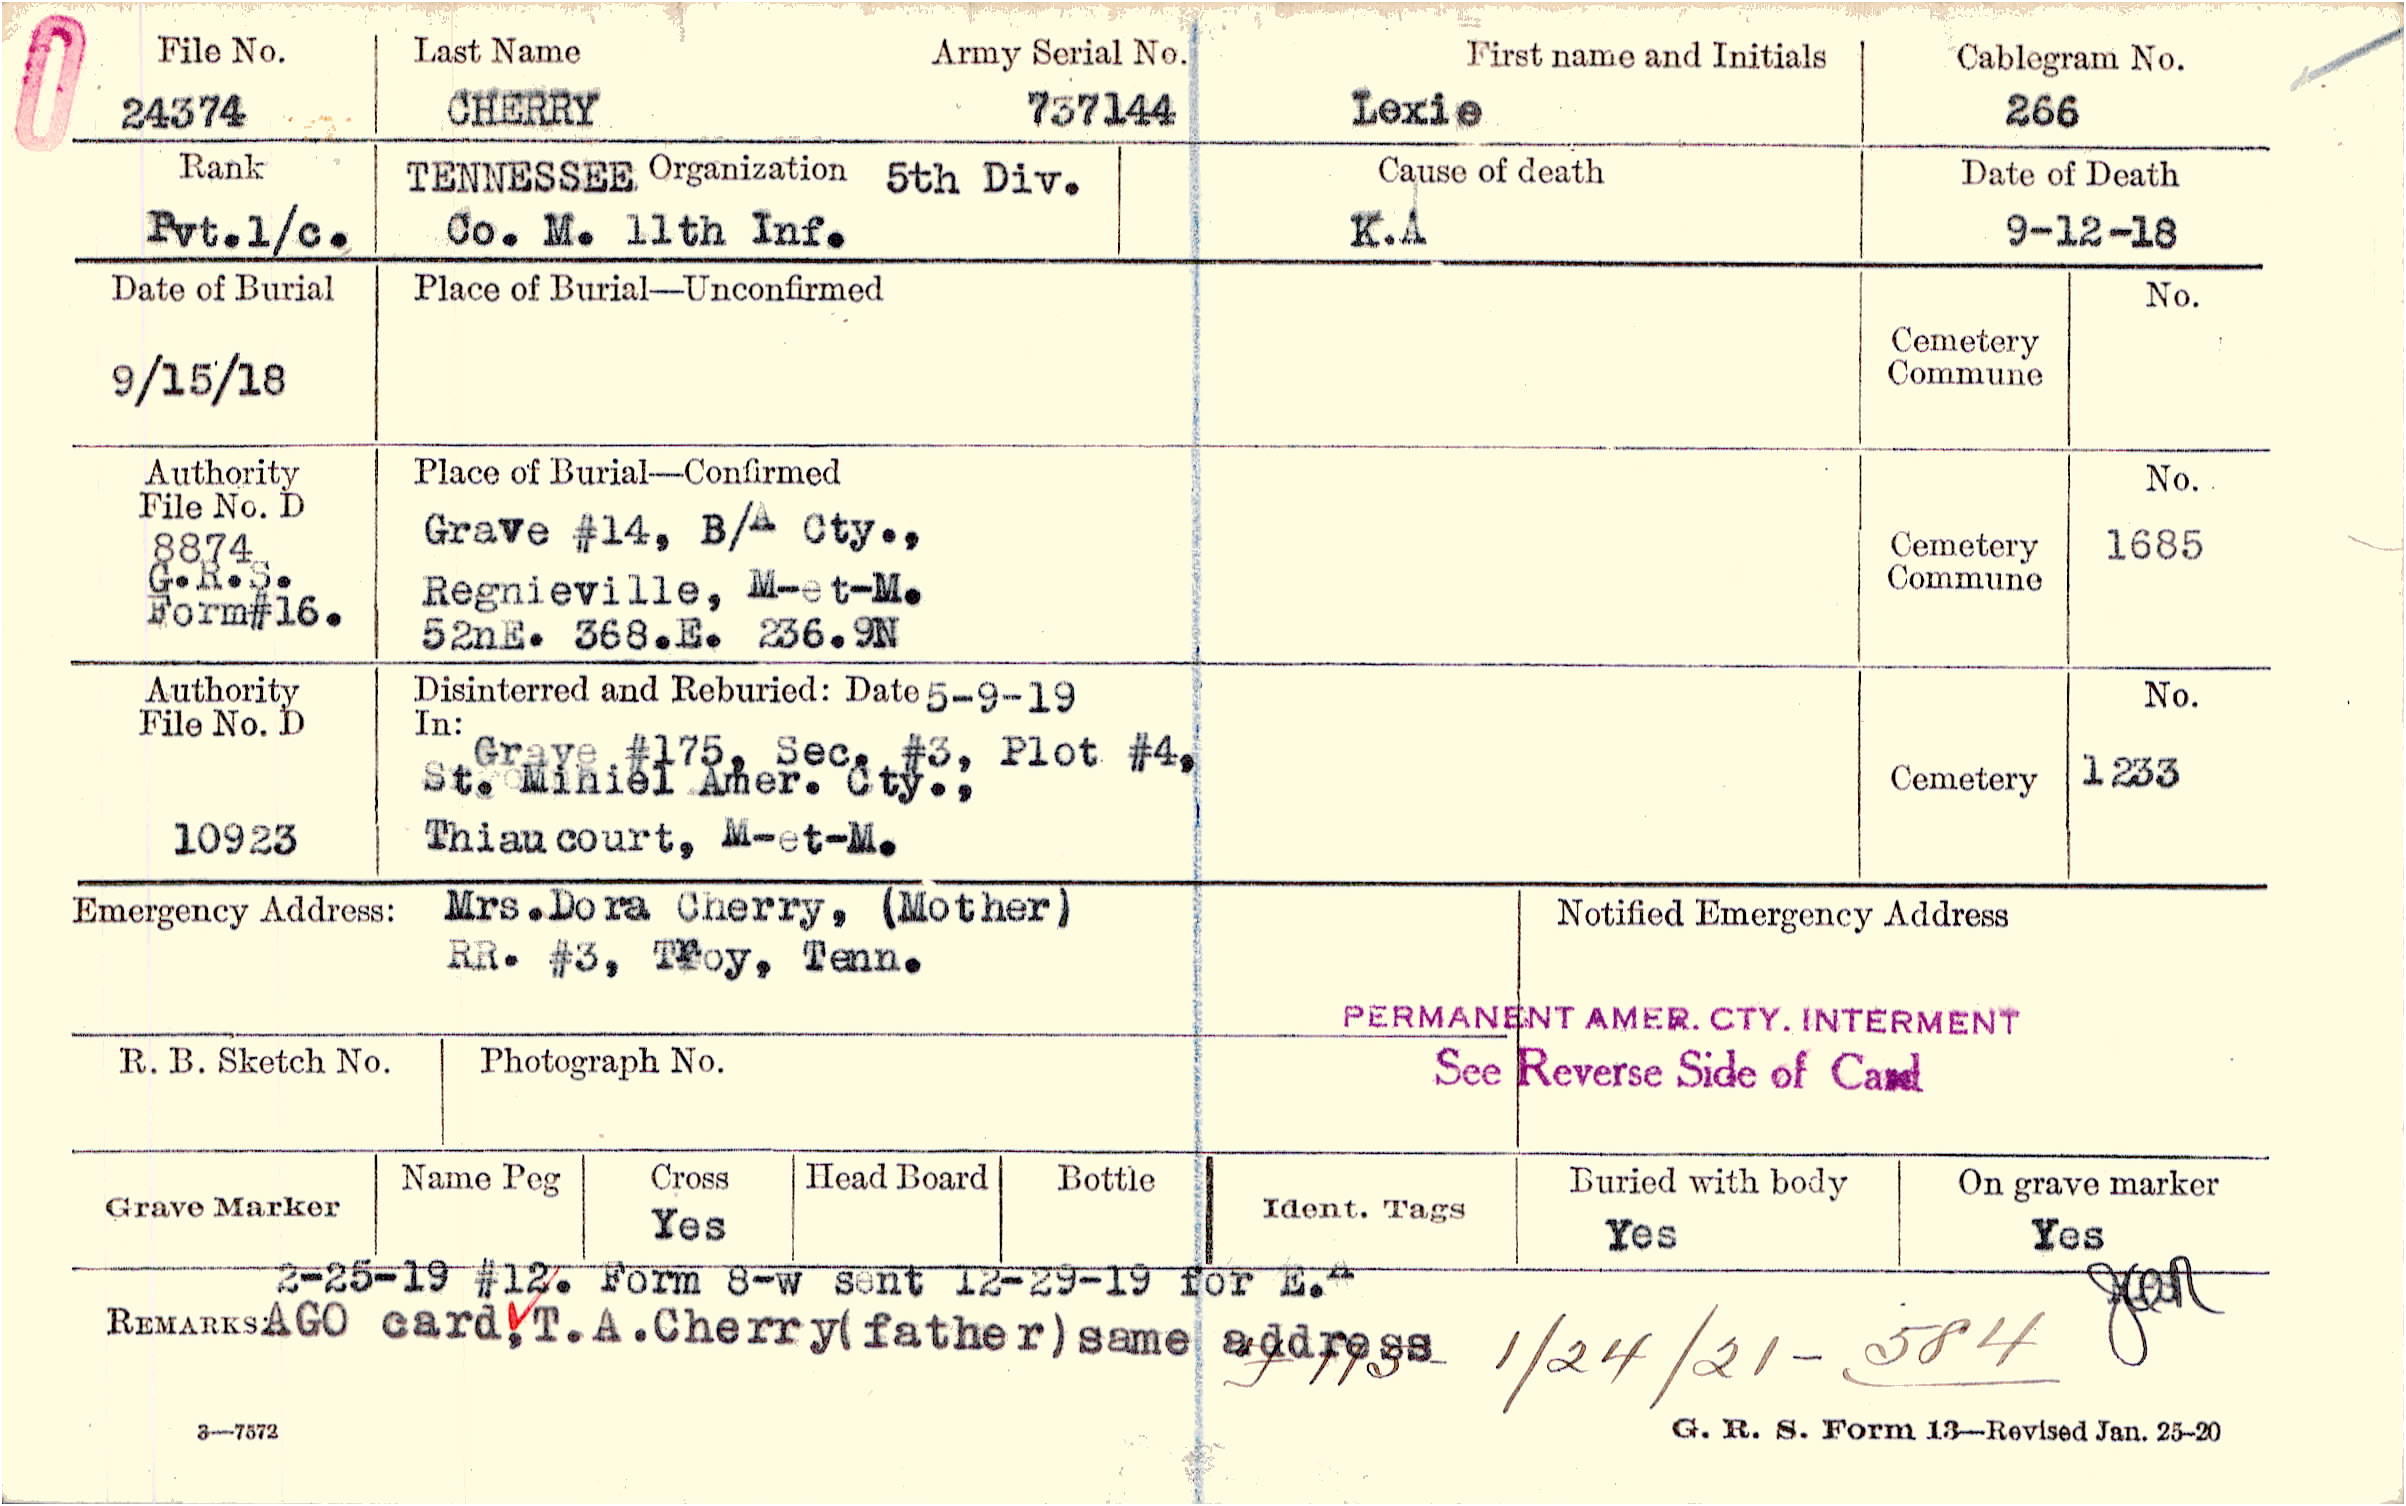 File No. Last Name Army Serial No. First name and Initials Cablegram No.
24374 CHERRY 737144 Lexie 266
Rank TENNESSEE Organization 5th Div. Cause of death Date of Death
Pvt.1/c. Co. M. 11th Inf. K.A 9-12-18
Date of Burial Place of Burial—Unconfirmed No.
Cemetery
Commune
9/15/18
Authority Place of Burial—Confirmed No.
File No. D
8874 Grave #14, B/A Cty., Cemetery 1685
G.R.S. Regnieville, M-et-M. Commune
Form#16. 52nE. 368.E. 236.9N
Authority Disinterred and Reburied: Date 5-9-19 No.
File No. D In:
Grave #175, Sec. #3, Plot #4,
St. Mihiel Amer. Cty., Cemetery 1233
10923 Thiaucourt, M-et-M.
Emergency Address: Mrs.Dora Cherry, (Mother) Notified Emergency Address
RR. #3, Troy, Tenn.
PERMANENT AMER. CTY. INTERMENT
R. B. Sketch No. Photograph No. See Reverse Side of Card
Grave Marker Name Peg Cross Head Board Bottle Ident. Tags Buried with body On grave marker
Yes Yes Yes
2-25-19 #12. Form 8-w sent 12-29-19 for E.A
REMARKS: AGO card, T.A.Cherry(father)same address 1/24/21- 584
3—7572 G. R. S. Form 13—Revised Jan. 25-20